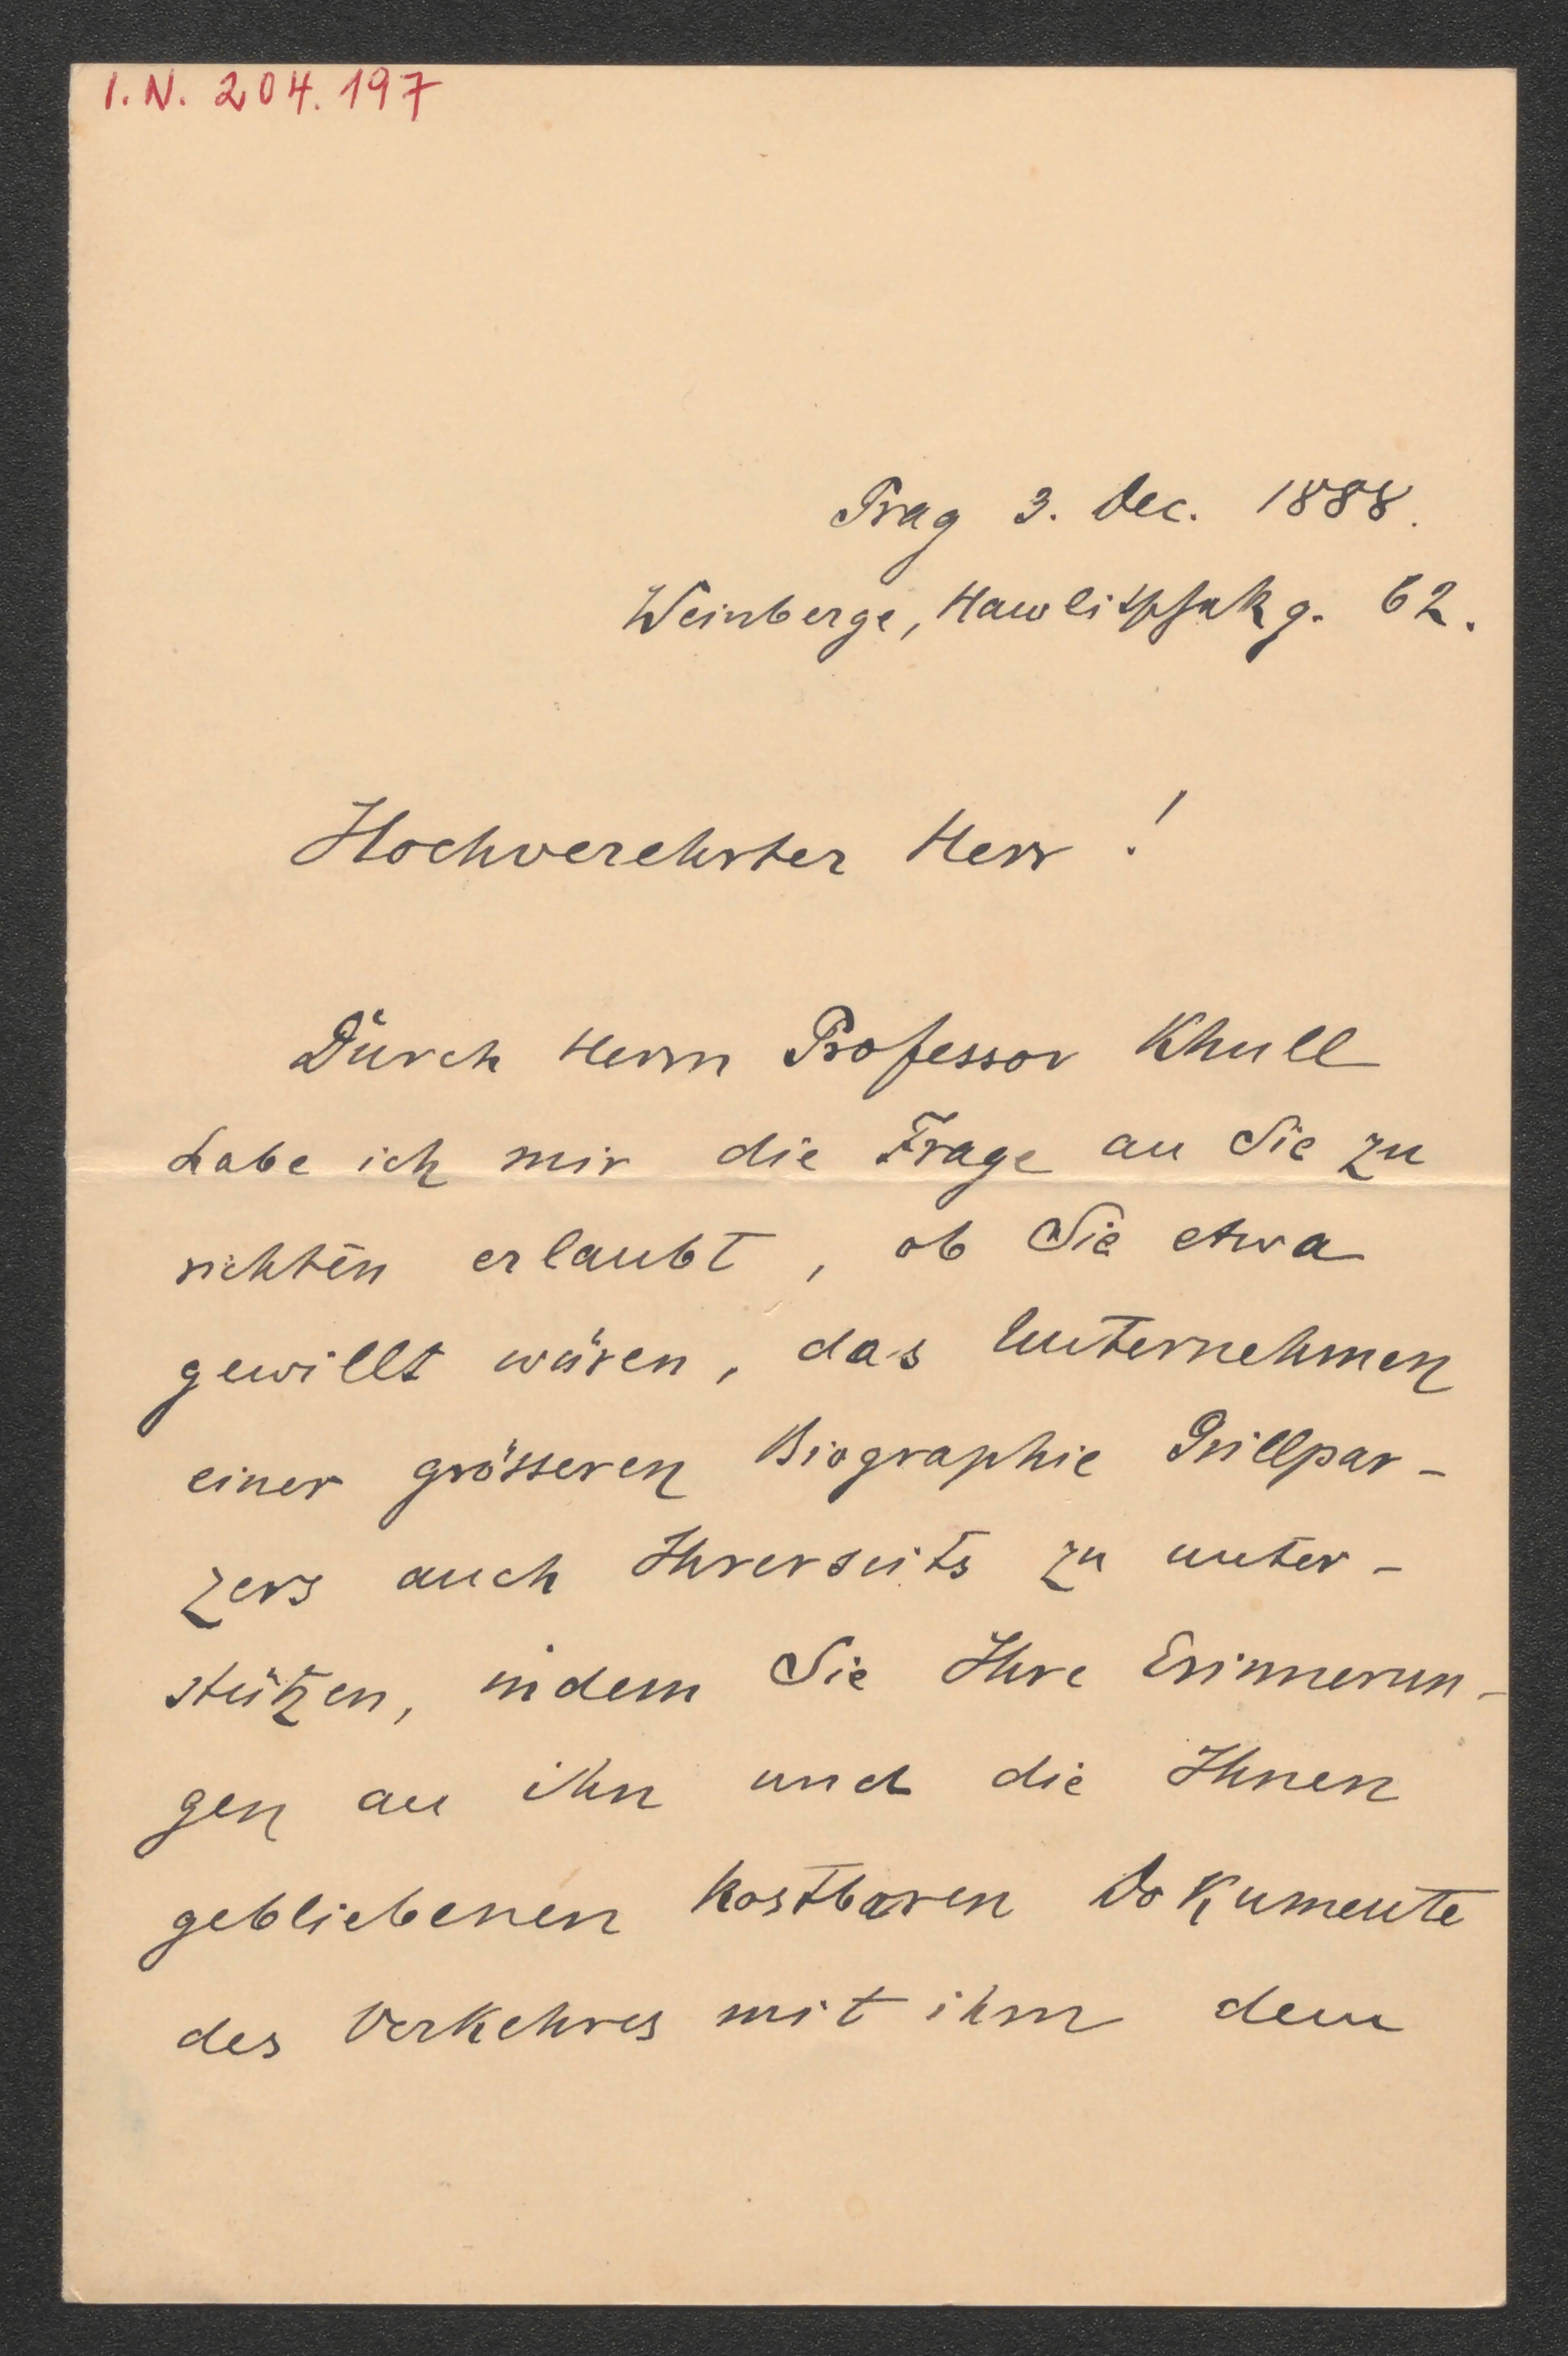 I. N. 204.197
Prag 3. Dec. 1888.
Weinberge, Hawlitschekg. 62.
Hochverehrter Herr!
Durch Herrn Professor Khull
habe ich mir die Frage an Sie zu
richten erlaubt, ob Sie etwa
gewillt wären, das Unternehmen
einer grösseren Biographie Grillpar-
zers auch Ihrerseits zu unter-
stützen, indem Sie Ihre Erinnerun-
gen an ihn und die Ihnen
gebliebenen kostbaren Dokumente
des Verkehres mit ihm dem